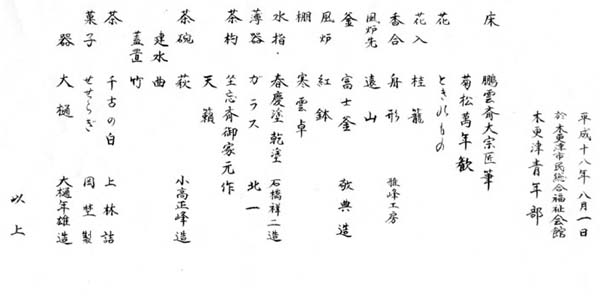 平成十八年八月一日
於木更津市民総合福祉会館
木更津青年部
床 鵬雲斎大宗匠筆
菊松萬年歓
花 ときのもの
花入 桂籠
香合 舟形 雅峰工房
風炉先 遠山
釜 富士釜 敬典造
風炉 紅鉢
棚 寒雲卓
水指・ 春慶塗乾塗 石橋祥二造
薄器 ガラス 北一
茶杓 坐忘斎御家元作
天籟
茶碗 萩 小高正峰造
建水 曲
蓋置 竹
茶 千古の白 上林詰
菓子 せせらぎ 岡埜製
器 大樋 大樋年雄造
以上